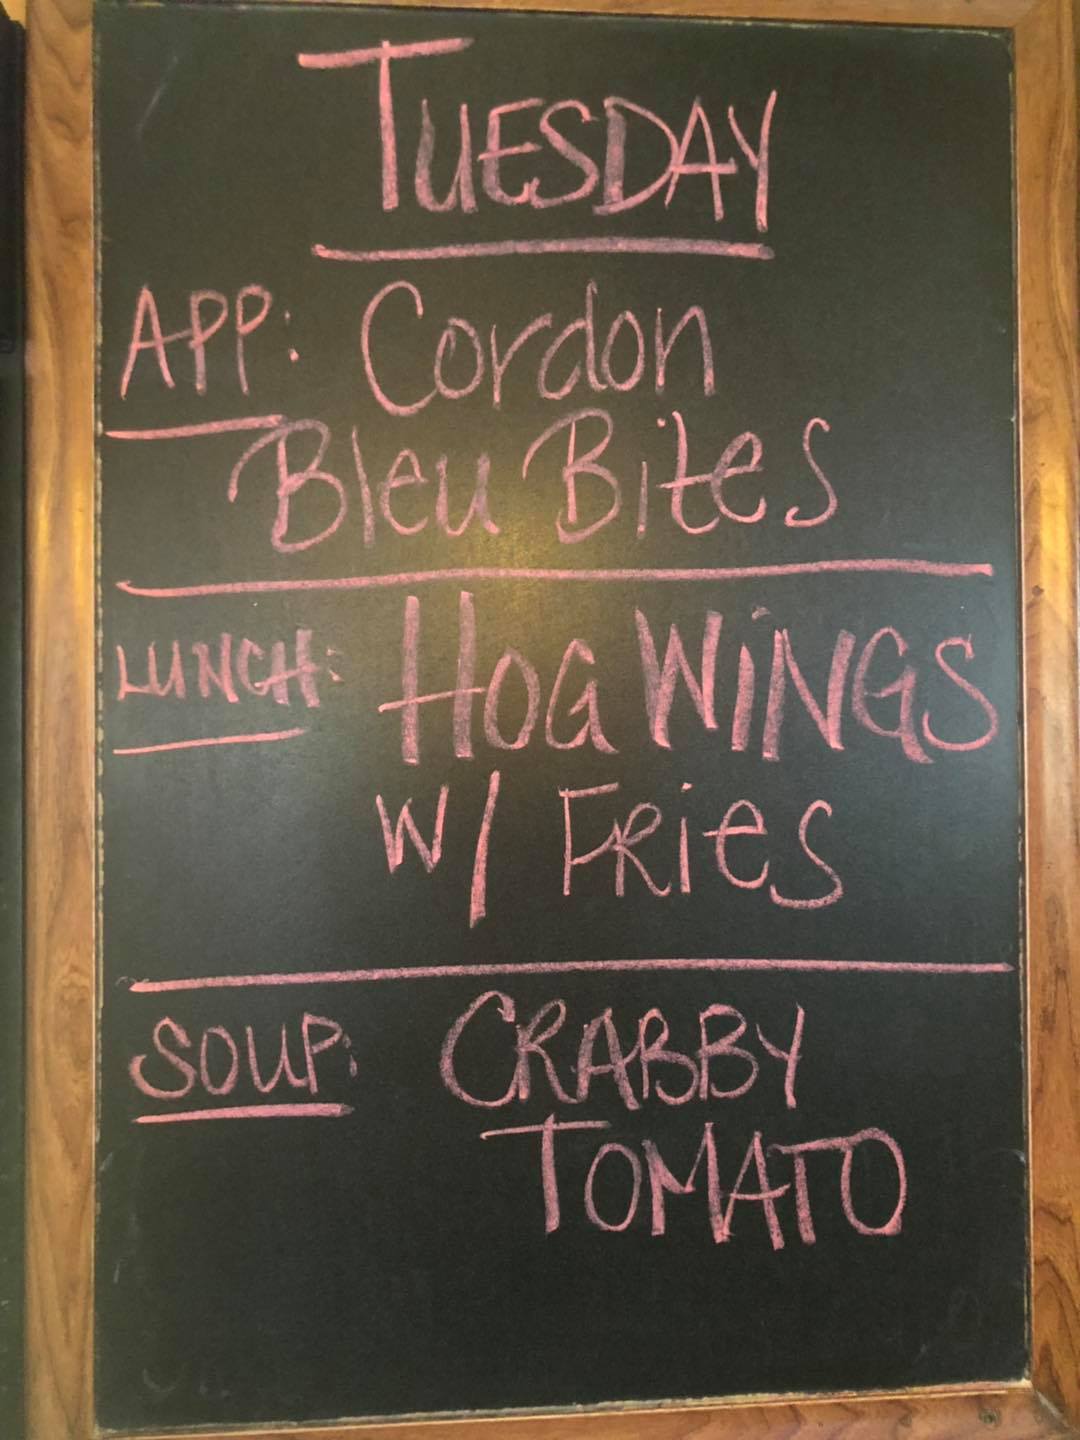 TUESDAY
APP: Cordon
Bleu Bites
LUNCH: HOG WiNGS
W/ FRies
SOUP: CRABBY
TOMATO